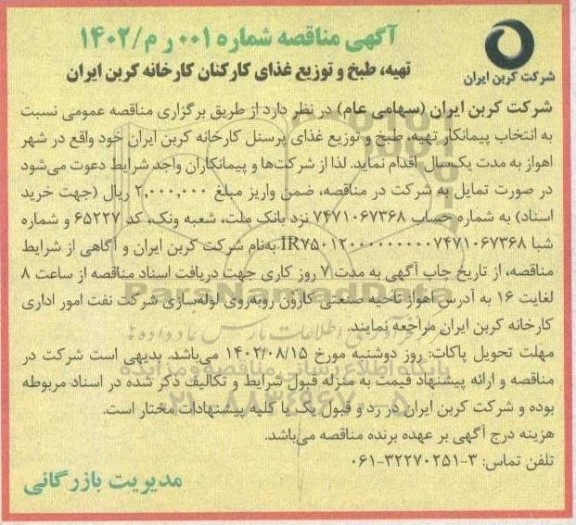 آگهی مناقصه شماره ۰۰۱ ر م/۱۴۰۲
تهیه، طبخ و توزیع غذای کارکنان کارخانه کربن ایران
شرکت کربن ایران
شرکت کربن ایران (سهامی عام) در نظر دارد از طریق برگزاری مناقصه عمومی نسبت
به انتخاب پیمانکار تهیه، طبخ و توزیع غذای پرسنل کارخانه کربن ایران خود واقع در شهر
اهواز به مدت یک‌سال اقدام نماید. لذا از شرکت‌ها و پیمانکاران واجد شرایط دعوت می‌شود
در صورت تمایل به شرکت در مناقصه، ضمن واریز مبلغ ۲,۰۰۰,۰۰۰ ریال (جهت خرید
اسناد) به شماره حساب ۷۴۷۱۰۶۷۳۶۸ نزد بانک ملت، شعبه ونک، کد ۶۵۲۲۷ و شماره
شبا IR۷۵۰۱۲۰۰۰۰۰۰۰۰۰۰۷۴۷۱۰۶۷۳۶۸ به‌نام شرکت کربن ایران و آگاهی از شرایط
مناقصه، از تاریخ چاپ آگهی به مدت ۷ روز کاری جهت دریافت اسناد مناقصه از ساعت ۸
لغایت ۱۶ به آدرس اهواز ناحیه صنعتی کارون روبه‌روی لوله‌سازی شرکت نفت امور اداری
کارخانه کربن ایران مراجعه نمایند.
مهلت تحویل پاکات: روز دوشنبه مورخ ۱۴۰۲/۰۸/۱۵ می‌باشد. بدیهی است شرکت در
مناقصه و ارائه پیشنهاد قیمت به منزله قبول شرایط و تکالیف ذکر شده در اسناد مربوطه
بوده و شرکت کربن ایران در رد و قبول یک یا کلیه پیشنهادات مختار است.
هزینه درج آگهی بر عهده برنده مناقصه می‌باشد.
تلفن تماس: ۳-۰۶۱-۳۲۲۷۰۲۵۱
مدیریت بازرگانی
ParsNamadData
پایگاه اطلاع رسانی مناقصه و مزایده
۰۲۱-۸۸۳۴۹۶۷۰-۵